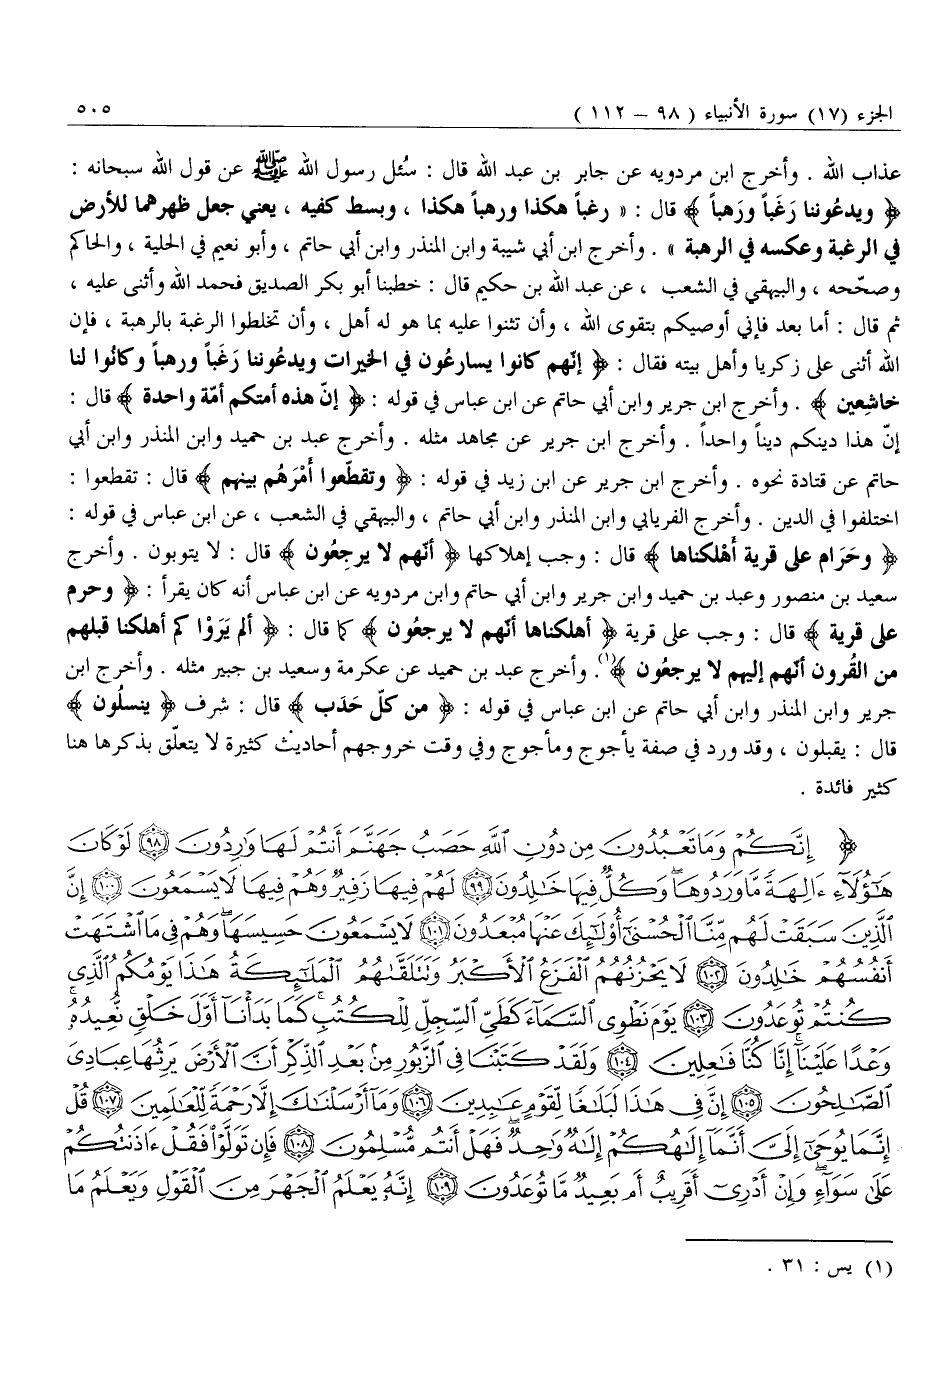 الجزء (١٧) سورة الأنبياء ( ٩٨ – ١١٢ ) ٥٠٥
عذاب الله . وأخرج ابن مردويه عن جابر بن عبد الله قال : سُئل رسول الله ﷺ عن قول الله سبحانه :
﴿ ويدعُوننا رَغَباً ورَهباً ﴾ قال : « رغباً هكذا ورهباً هكذا ، وبسط كفيه ، يعني جعل ظهرهما للأرض
في الرغبة وعكسه في الرهبة » . وأخرج ابن أبي شيبة وابن المنذر وابن أبي حاتم ، وأبو نعيم في الحلية ، والحاكم
وصحّحه ، والبيهقي في الشعب ، عن عبد الله بن حكيم قال : خطبنا أبو بكر الصديق فحمد الله وأثنى عليه ،
ثم قال : أما بعد فإني أوصيكم بتقوى الله ، وأن تثنوا عليه بما هو له أهل ، وأن تخلطوا الرغبة بالرهبة ، فإن
الله أثنى على زكريا وأهل بيته فقال : ﴿ إنّهم كانوا يسارعُون في الخيرات ويدعُوننا رَغَباً ورهباً وكانُوا لنا
خاشِعين ﴾ . وأخرج ابن جرير وابن أبي حاتم عن ابن عباس في قوله : ﴿ إنّ هذه أمتكم أمّة واحدة ﴾ قال :
إنّ هذا دينكم ديناً واحداً . وأخرج ابن جرير عن مجاهد مثله . وأخرج عبد بن حميد وابن المنذر وابن أبي
حاتم عن قتادة نحوه . وأخرج ابن جرير عن ابن زيد في قوله : ﴿ وتقطّعوا أَمْرَهُم بينهم ﴾ قال : تقطعوا :
اختلفوا في الدين . وأخرج الفريابي وابن المنذر وابن أبي حاتم ، والبيهقي في الشعب ، عن ابن عباس في قوله :
﴿ وحَرَام على قرية أَهْلكناها ﴾ قال : وجب إهلاكها ﴿ أنّهم لا يرجِعُون ﴾ قال : لا يتوبون . وأخرج
سعيد بن منصور وعبد بن حميد وابن جرير وابن أبي حاتم وابن مردويه عن ابن عباس أنه كان يقرأ : ﴿ وحرم
على قرية ﴾ قال : وجب على قرية ﴿ أهلكناها أنّهم لا يرجعُون ﴾ كما قال : ﴿ ألم يَرَوْا كم أهلكنا قبلهم
من القُرون أنّهم إليهم لا يرجعُون ﴾(١). وأخرج عبد بن حميد عن عكرمة وسعيد بن جبير مثله . وأخرج ابن
جرير وابن المنذر وابن أبي حاتم عن ابن عباس في قوله : ﴿ من كلّ حَدَب ﴾ قال : شرف ﴿ ينسلُون ﴾
قال : يقبلون ، وقد ورد في صفة يأجوج ومأجوج وفي وقت خروجهم أحاديث كثيرة لا يتعلّق بذكرها هنا
كثير فائدة .
﴿ إِنَّكُمْ وَمَا تَعْبُدُونَ مِن دُونِ ٱللَّهِ حَصَبُ جَهَنَّمَ أَنتُمْ لَهَا وَٰرِدُونَ ٩٨ لَوْ كَانَ
هَٰٓؤُلَآءِ ءَالِهَةً مَّا وَرَدُوهَا وَكُلٌّ فِيهَا خَٰلِدُونَ ٩٩ لَهُمْ فِيهَا زَفِيرٌ وَهُمْ فِيهَا لَا يَسْمَعُونَ ١٠٠ إِنَّ
ٱلَّذِينَ سَبَقَتْ لَهُم مِّنَّا ٱلْحُسْنَىٰٓ أُوْلَٰٓئِكَ عَنْهَا مُبْعَدُونَ ١٠١ لَا يَسْمَعُونَ حَسِيسَهَا وَهُمْ فِى مَا ٱشْتَهَتْ
أَنفُسُهُمْ خَٰلِدُونَ ١٠٢ لَا يَحْزُنُهُمُ ٱلْفَزَعُ ٱلْأَكْبَرُ وَتَتَلَقَّىٰهُمُ ٱلْمَلَٰٓئِكَةُ هَٰذَا يَوْمُكُمُ ٱلَّذِى
كُنتُمْ تُوعَدُونَ ١٠٣ يَوْمَ نَطْوِى ٱلسَّمَآءَ كَطَىِّ ٱلسِّجِلِّ لِلْكُتُبِ كَمَا بَدَأْنَآ أَوَّلَ خَلْقٍ نُّعِيدُهُۥ
وَعْدًا عَلَيْنَآ إِنَّا كُنَّا فَٰعِلِينَ ١٠٤ وَلَقَدْ كَتَبْنَا فِى ٱلزَّبُورِ مِنۢ بَعْدِ ٱلذِّكْرِ أَنَّ ٱلْأَرْضَ يَرِثُهَا عِبَادِىَ
ٱلصَّٰلِحُونَ ١٠٥ إِنَّ فِى هَٰذَا لَبَلَٰغًا لِّقَوْمٍ عَٰبِدِينَ ١٠٦ وَمَآ أَرْسَلْنَٰكَ إِلَّا رَحْمَةً لِّلْعَٰلَمِينَ ١٠٧ قُلْ
إِنَّمَا يُوحَىٰٓ إِلَىَّ أَنَّمَآ إِلَٰهُكُمْ إِلَٰهٌ وَٰحِدٌ فَهَلْ أَنتُم مُّسْلِمُونَ ١٠٨ فَإِن تَوَلَّوْا۟ فَقُلْ ءَاذَنتُكُمْ
عَلَىٰ سَوَآءٍ وَإِنْ أَدْرِىٓ أَقَرِيبٌ أَم بَعِيدٌ مَّا تُوعَدُونَ ١٠٩ إِنَّهُۥ يَعْلَمُ ٱلْجَهْرَ مِنَ ٱلْقَوْلِ وَيَعْلَمُ مَا
(١) يس : ٣١ .